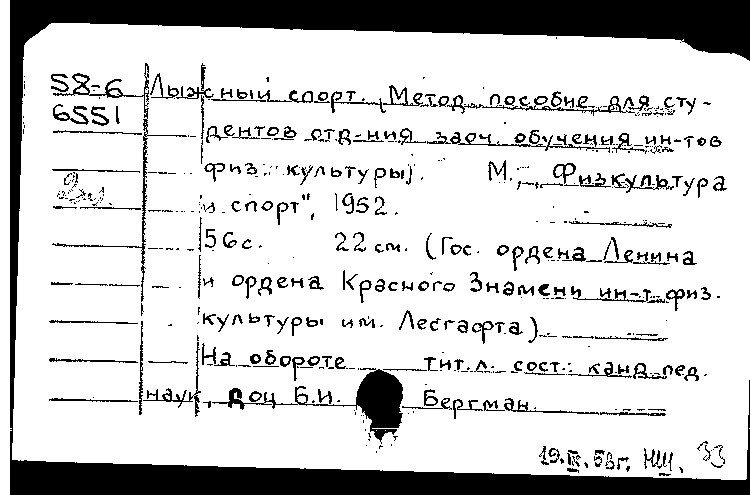 58-6 Лыжный спорт. (Метод. пособие для сту-
6551 дентов отд-ния заоч. обучения ин-тов
физ. культуры).   М., „Физкультура
и спорт", 1952.
56 с.   22 см. (Гос. ордена Ленина
и ордена Красного Знамени ин-т физ.
культуры им. Лесгафта)
На обороте тит. л. сост.: канд. пед.
наук, доц Б.И. Бергман.
19.IX.58г. НШ. 33